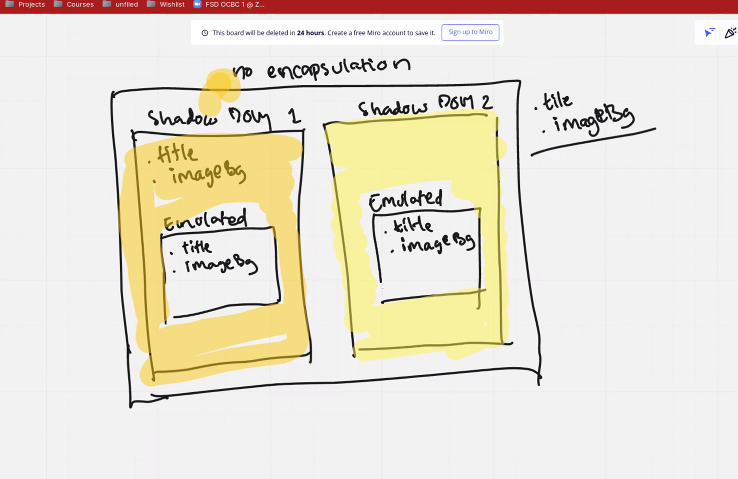 Projects
Courses
unfiled
Wishlist
FSD OCBC 1 @ Z...
This board will be deleted in 24 hours. Create a free Miro account to save it.
Sign up to Miro
no encapsulation
Shadow DOM 1
Shadow DOM 2
. title
. imageBg
. title
. imageBg
Emulated
. title
. imageBg
Emulated
. title
. imageBg